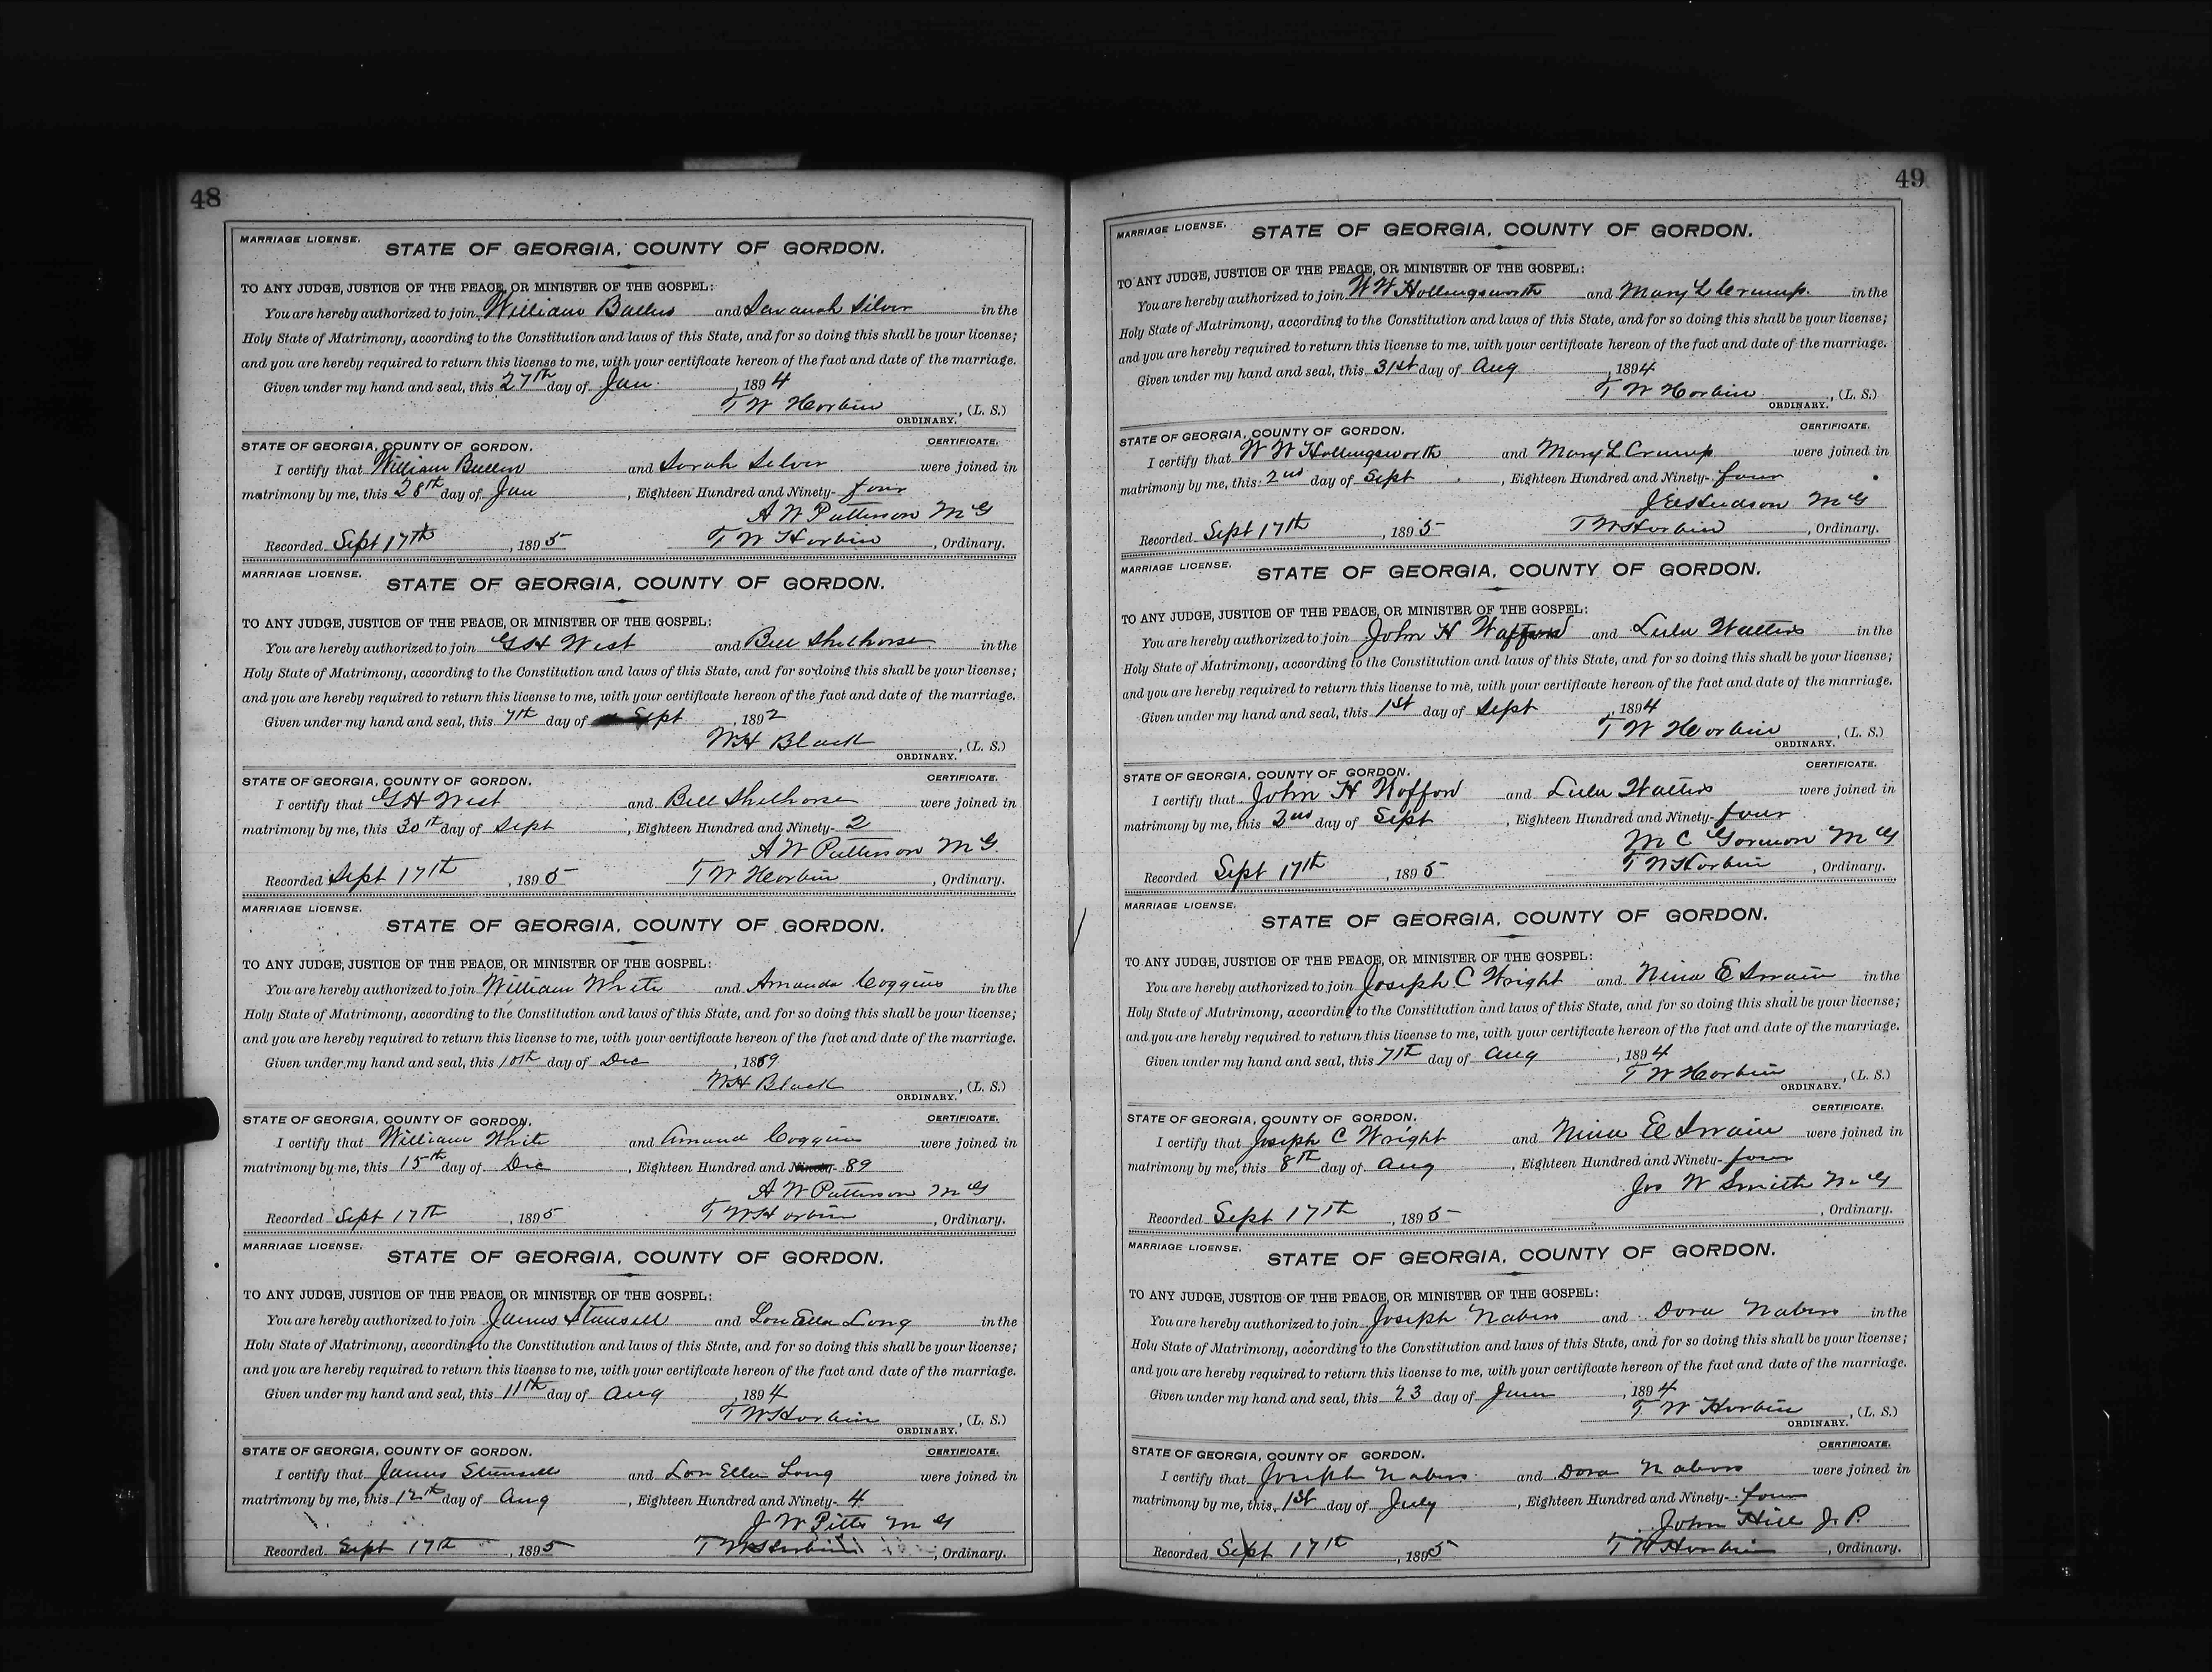 48
MARRIAGE LICENSE.
STATE OF GEORGIA, COUNTY OF GORDON.
TO ANY JUDGE, JUSTICE OF THE PEACE, OR MINISTER OF THE GOSPEL:
You are hereby authorized to join William and Silver in the
Holy State of Matrimony, according to the Constitution and laws of this State, and for so doing this shall be your license;
and you are hereby required to return this license to me, with your certificate hereon of the fact and date of the marriage.
Given under my hand and seal, this 27th day of Jan. , 1894
T W Harbin , (L. S.)
ORDINARY.
STATE OF GEORGIA, COUNTY OF GORDON. CERTIFICATE.
I certify that William and Sarah Silver were joined in
matrimony by me, this 28th day of Jan , Eighteen Hundred and Ninety- four
A W Patterson M G
Recorded Sept 17th , 1895 T W Harbin , Ordinary.
MARRIAGE LICENSE.
STATE OF GEORGIA, COUNTY OF GORDON.
TO ANY JUDGE, JUSTICE OF THE PEACE, OR MINISTER OF THE GOSPEL:
You are hereby authorized to join G H West and Bell Shelhorse in the
Holy State of Matrimony, according to the Constitution and laws of this State, and for so doing this shall be your license;
and you are hereby required to return this license to me, with your certificate hereon of the fact and date of the marriage.
Given under my hand and seal, this 7th day of Sept , 1892
W H Black , (L. S.)
ORDINARY.
STATE OF GEORGIA, COUNTY OF GORDON. CERTIFICATE.
I certify that G H West and Bell Shelhorse were joined in
matrimony by me, this 30th day of Sept , Eighteen Hundred and Ninety- 2
A W Patterson M G.
Recorded Sept 17th , 1895 T W Harbin , Ordinary.
MARRIAGE LICENSE.
STATE OF GEORGIA, COUNTY OF GORDON.
TO ANY JUDGE, JUSTICE OF THE PEACE, OR MINISTER OF THE GOSPEL:
You are hereby authorized to join William White and Amanda Coggins in the
Holy State of Matrimony, according to the Constitution and laws of this State, and for so doing this shall be your license;
and you are hereby required to return this license to me, with your certificate hereon of the fact and date of the marriage.
Given under my hand and seal, this 10th day of Dec , 1889
W H Black , (L. S.)
ORDINARY.
STATE OF GEORGIA, COUNTY OF GORDON. CERTIFICATE.
I certify that William White and Amand Coggins were joined in
matrimony by me, this 15th day of Dec , Eighteen Hundred and Ninety- 89
A W Patterson M G
Recorded Sept 17th , 1895 T W Harbin , Ordinary.
MARRIAGE LICENSE.
STATE OF GEORGIA, COUNTY OF GORDON.
TO ANY JUDGE, JUSTICE OF THE PEACE, OR MINISTER OF THE GOSPEL:
You are hereby authorized to join James Stansell and Lou Ella Long in the
Holy State of Matrimony, according to the Constitution and laws of this State, and for so doing this shall be your license;
and you are hereby required to return this license to me, with your certificate hereon of the fact and date of the marriage.
Given under my hand and seal, this 11th day of Aug , 1894
T W Harbin , (L. S.)
ORDINARY.
STATE OF GEORGIA, COUNTY OF GORDON. CERTIFICATE.
I certify that James Stansell and Lou Ella Long were joined in
matrimony by me, this 12th day of Aug , Eighteen Hundred and Ninety- 4
J W Pitts M G
Recorded Sept 17th , 1895 T W Harbin , Ordinary.
49
MARRIAGE LICENSE.
STATE OF GEORGIA, COUNTY OF GORDON.
TO ANY JUDGE, JUSTICE OF THE PEACE, OR MINISTER OF THE GOSPEL:
You are hereby authorized to join W W Hollingsworth and Mary L Crump. in the
Holy State of Matrimony, according to the Constitution and laws of this State, and for so doing this shall be your license;
and you are hereby required to return this license to me, with your certificate hereon of the fact and date of the marriage.
Given under my hand and seal, this 31st day of Aug , 1894
T W Harbin , (L. S.)
ORDINARY.
STATE OF GEORGIA, COUNTY OF GORDON. CERTIFICATE.
I certify that W W Hollingsworth and Mary L Crump were joined in
matrimony by me, this 2nd day of Sept , Eighteen Hundred and Ninety- four
J E Hudson M G
Recorded Sept 17th , 1895 T W Harbin , Ordinary.
MARRIAGE LICENSE.
STATE OF GEORGIA, COUNTY OF GORDON.
TO ANY JUDGE, JUSTICE OF THE PEACE, OR MINISTER OF THE GOSPEL:
You are hereby authorized to join John H Wafford and Lula Walters in the
Holy State of Matrimony, according to the Constitution and laws of this State, and for so doing this shall be your license;
and you are hereby required to return this license to me, with your certificate hereon of the fact and date of the marriage.
Given under my hand and seal, this 1st day of Sept , 1894
T W Harbin , (L. S.)
ORDINARY.
STATE OF GEORGIA, COUNTY OF GORDON. CERTIFICATE.
I certify that John H Wofford and Lula Walters were joined in
matrimony by me, this 2nd day of Sept , Eighteen Hundred and Ninety- four
M C Gormon M G
Recorded Sept 17th , 1895 T W Harbin , Ordinary.
MARRIAGE LICENSE.
STATE OF GEORGIA, COUNTY OF GORDON.
TO ANY JUDGE, JUSTICE OF THE PEACE, OR MINISTER OF THE GOSPEL:
You are hereby authorized to join Joseph C Wright and Nina E Swain in the
Holy State of Matrimony, according to the Constitution and laws of this State, and for so doing this shall be your license;
and you are hereby required to return this license to me, with your certificate hereon of the fact and date of the marriage.
Given under my hand and seal, this 7th day of Aug , 1894
T W Harbin , (L. S.)
ORDINARY.
STATE OF GEORGIA, COUNTY OF GORDON. CERTIFICATE.
I certify that Joseph C Wright and Nina E Swain were joined in
matrimony by me, this 8th day of Aug , Eighteen Hundred and Ninety- four
Jos W Smith M G
Recorded Sept 17th , 1895 , Ordinary.
MARRIAGE LICENSE.
STATE OF GEORGIA, COUNTY OF GORDON.
TO ANY JUDGE, JUSTICE OF THE PEACE, OR MINISTER OF THE GOSPEL:
You are hereby authorized to join Joseph Nabors and Dora Nabors in the
Holy State of Matrimony, according to the Constitution and laws of this State, and for so doing this shall be your license;
and you are hereby required to return this license to me, with your certificate hereon of the fact and date of the marriage.
Given under my hand and seal, this 23 day of June , 1894
T W Harbin , (L. S.)
ORDINARY.
STATE OF GEORGIA, COUNTY OF GORDON. CERTIFICATE.
I certify that Joseph Nabors and Dora Nabors were joined in
matrimony by me, this 1st day of July , Eighteen Hundred and Ninety- four
John Hill J. P.
Recorded Sept 17th , 1895 T W Harbin , Ordinary.